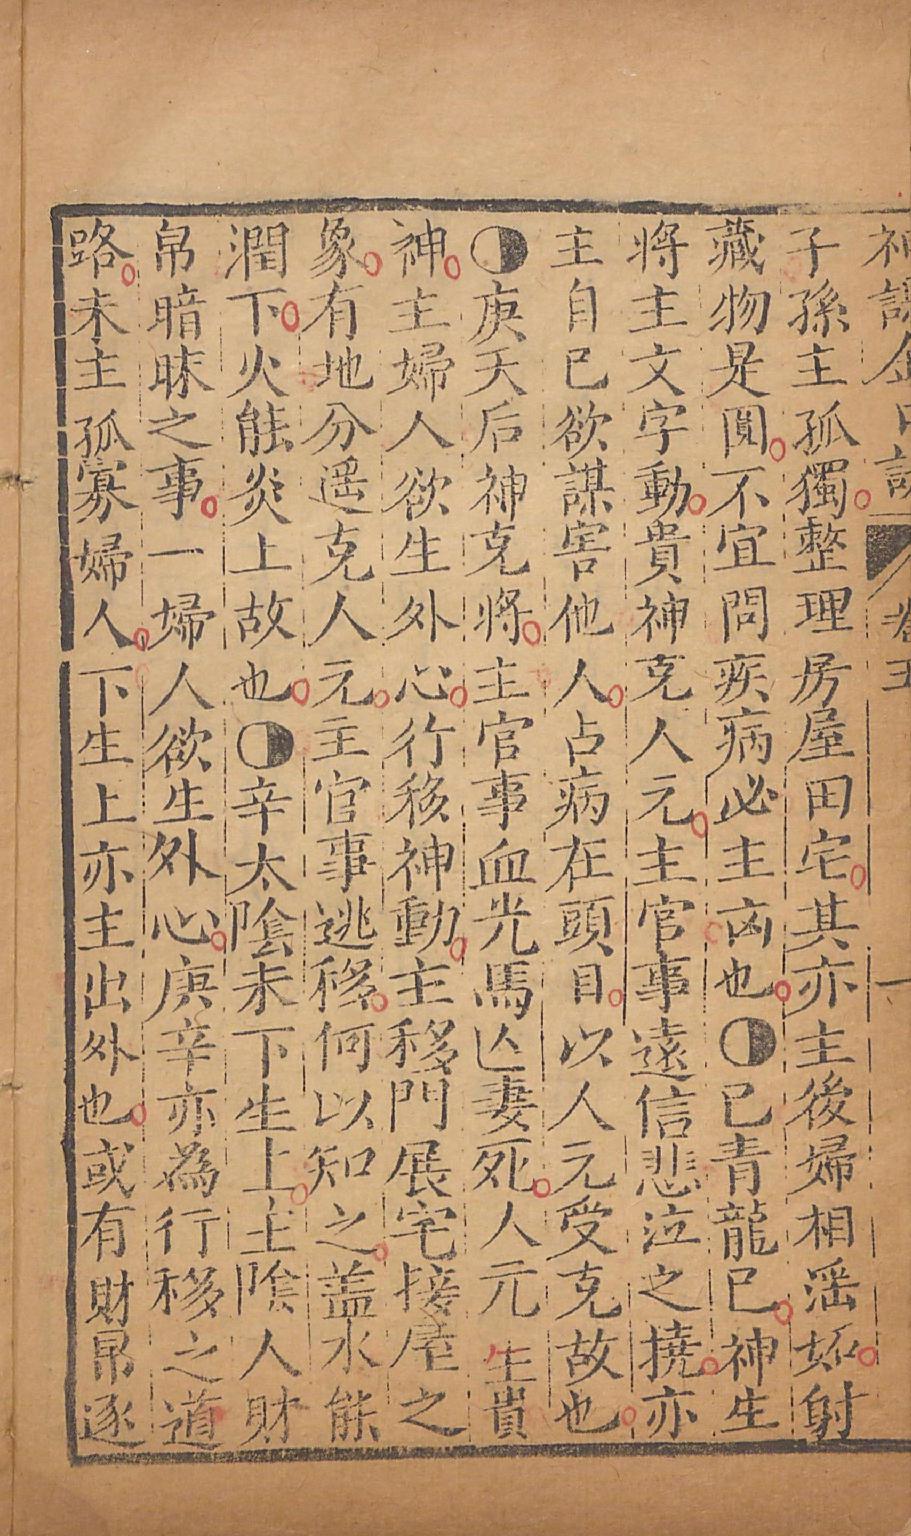 神課金口訣 卷五 一
子孫主孤獨整理房屋田宅其亦主後婦相滛姤射
藏物是圓不宜問疾病必主凶也◑己青龍巳神生
將主文字動貴神克人元主官事遠信悲泣之撓亦
主自已欲謀害他人占病在頭目以人元受克故也
◑庚天后神克將主官事血光馬亾妻死人元生貴
神主婦人欲生外心行移神動主移門展宅接屋之
象有地分遥克人元主官事逃移何以知之盖水能
潤下火能炎上故也◑辛太陰未下生上主陰人財
帛暗昧之事一婦人欲生外心庚辛亦為行移之道
路未主孤寡婦人下生上亦主出外也或有財帛逐